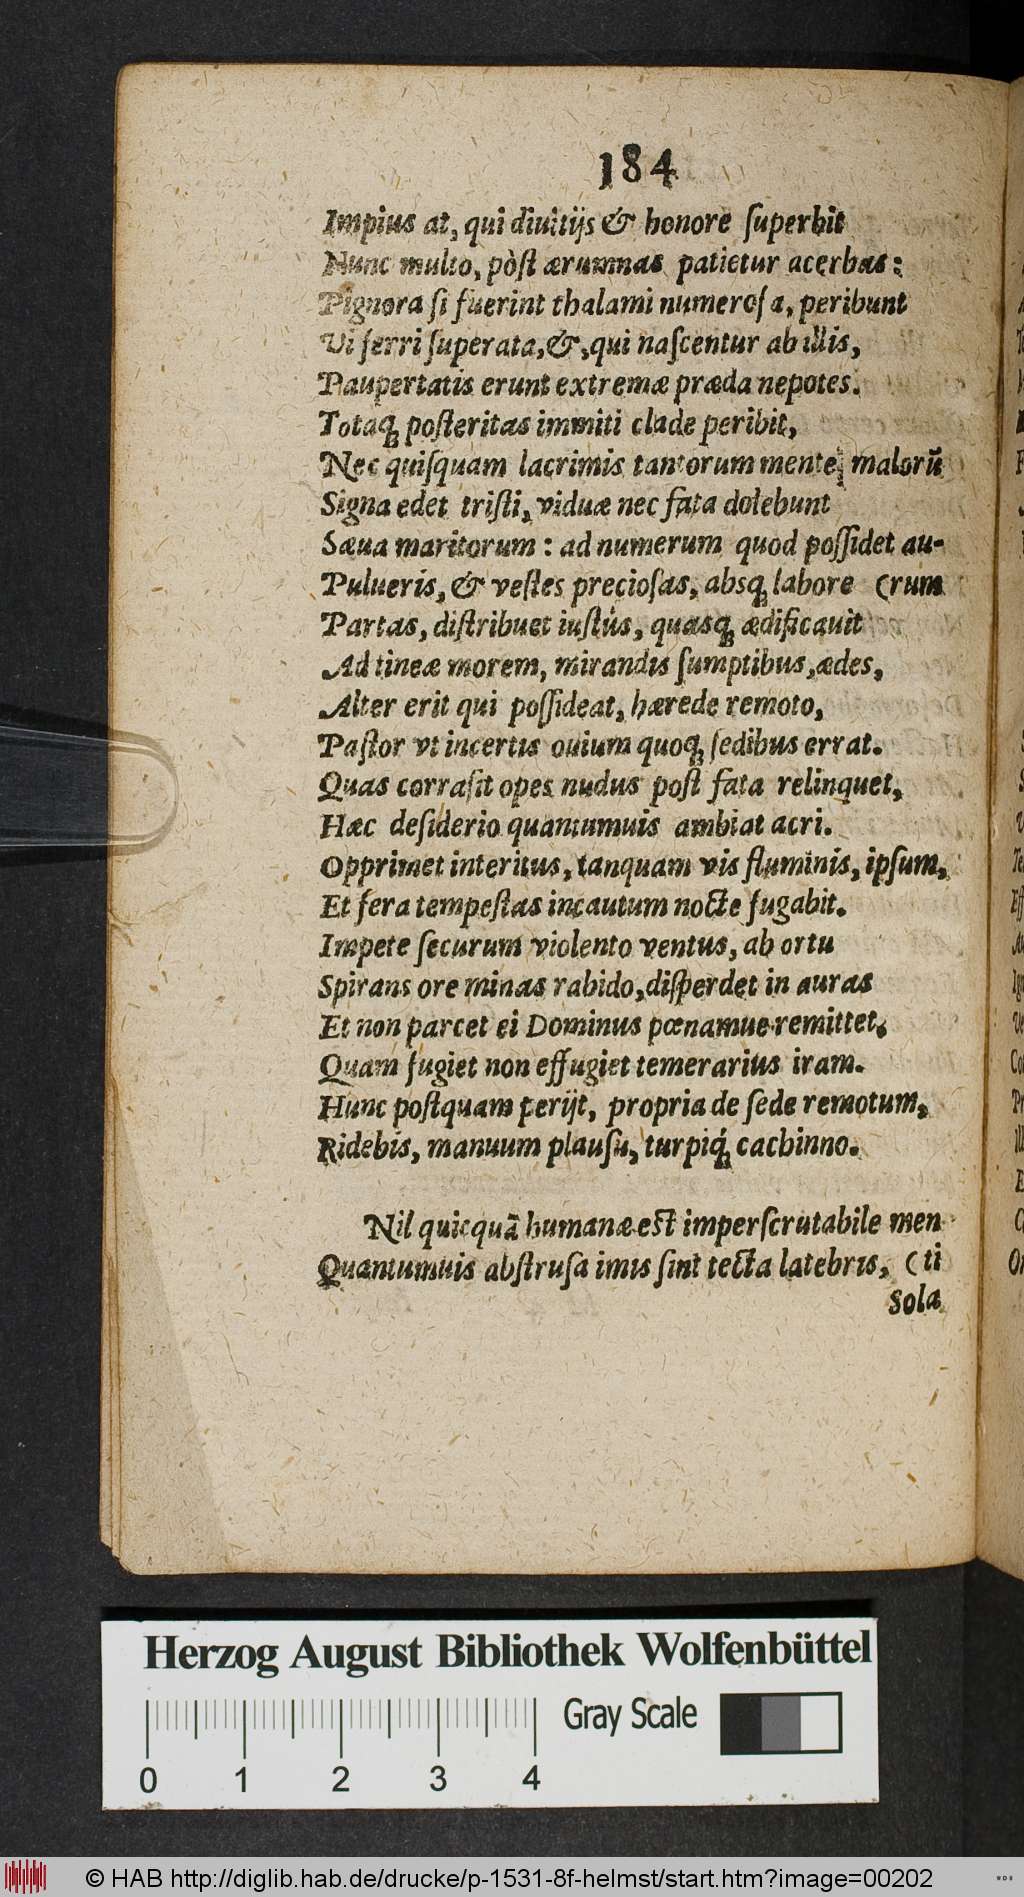 184
Impius at, qui diuitijs & honore ſuperbit
Nunc multo, pòſt ærumnas patietur acerbas:
Pignora ſi fuerint thalami numeroſa, peribunt
Vi ferri ſuperata, &, qui naſcentur ab illis,
Paupertatis erunt extremæ præda nepotes.
Totaq́; poſteritas immiti clade peribit,
Nec quiſquam lacrimis tantorum mente malorũ
Signa edet triſti, viduæ nec fata dolebunt
Sæua maritorum: ad numerum quod poſſidet au-
Pulueris, & veſtes precioſas, absq; labore (rum
Partas, diſtribuet iuſtus, quasq; ædificauit
Ad tineæ morem, mirandis ſumptibus, ædes,
Alter erit qui poſſideat, hærede remoto,
Paſtor vt incertis ouium quoq; ſedibus errat.
Quas corraſit opes nudus poſt fata relinquet,
Hæc deſiderio quantumuis ambiat acri.
Opprimet interitus, tanquam vis fluminis, ipſum,
Et fera tempeſtas incautum nocte fugabit.
Impete ſecurum violento ventus, ab ortu
Spirans ore minas rabido, diſperdet in auras
Et non parcet ei Dominus pœnamue remittet,
Quam fugiet non effugiet temerarius iram.
Hunc poſtquam perijt, propria de ſede remotum,
Ridebis, manuum plauſu, turpiq́; cachinno.
Nil quicquã humanæ eſt imperſcrutabile men
Quantumuis abſtruſa imis ſint tecta latebris, (ti
Sola
Herzog August Bibliothek Wolfenbüttel
Gray Scale
0 1 2 3 4
© HAB http://diglib.hab.de/drucke/p-1531-8f-helmst/start.htm?image=00202